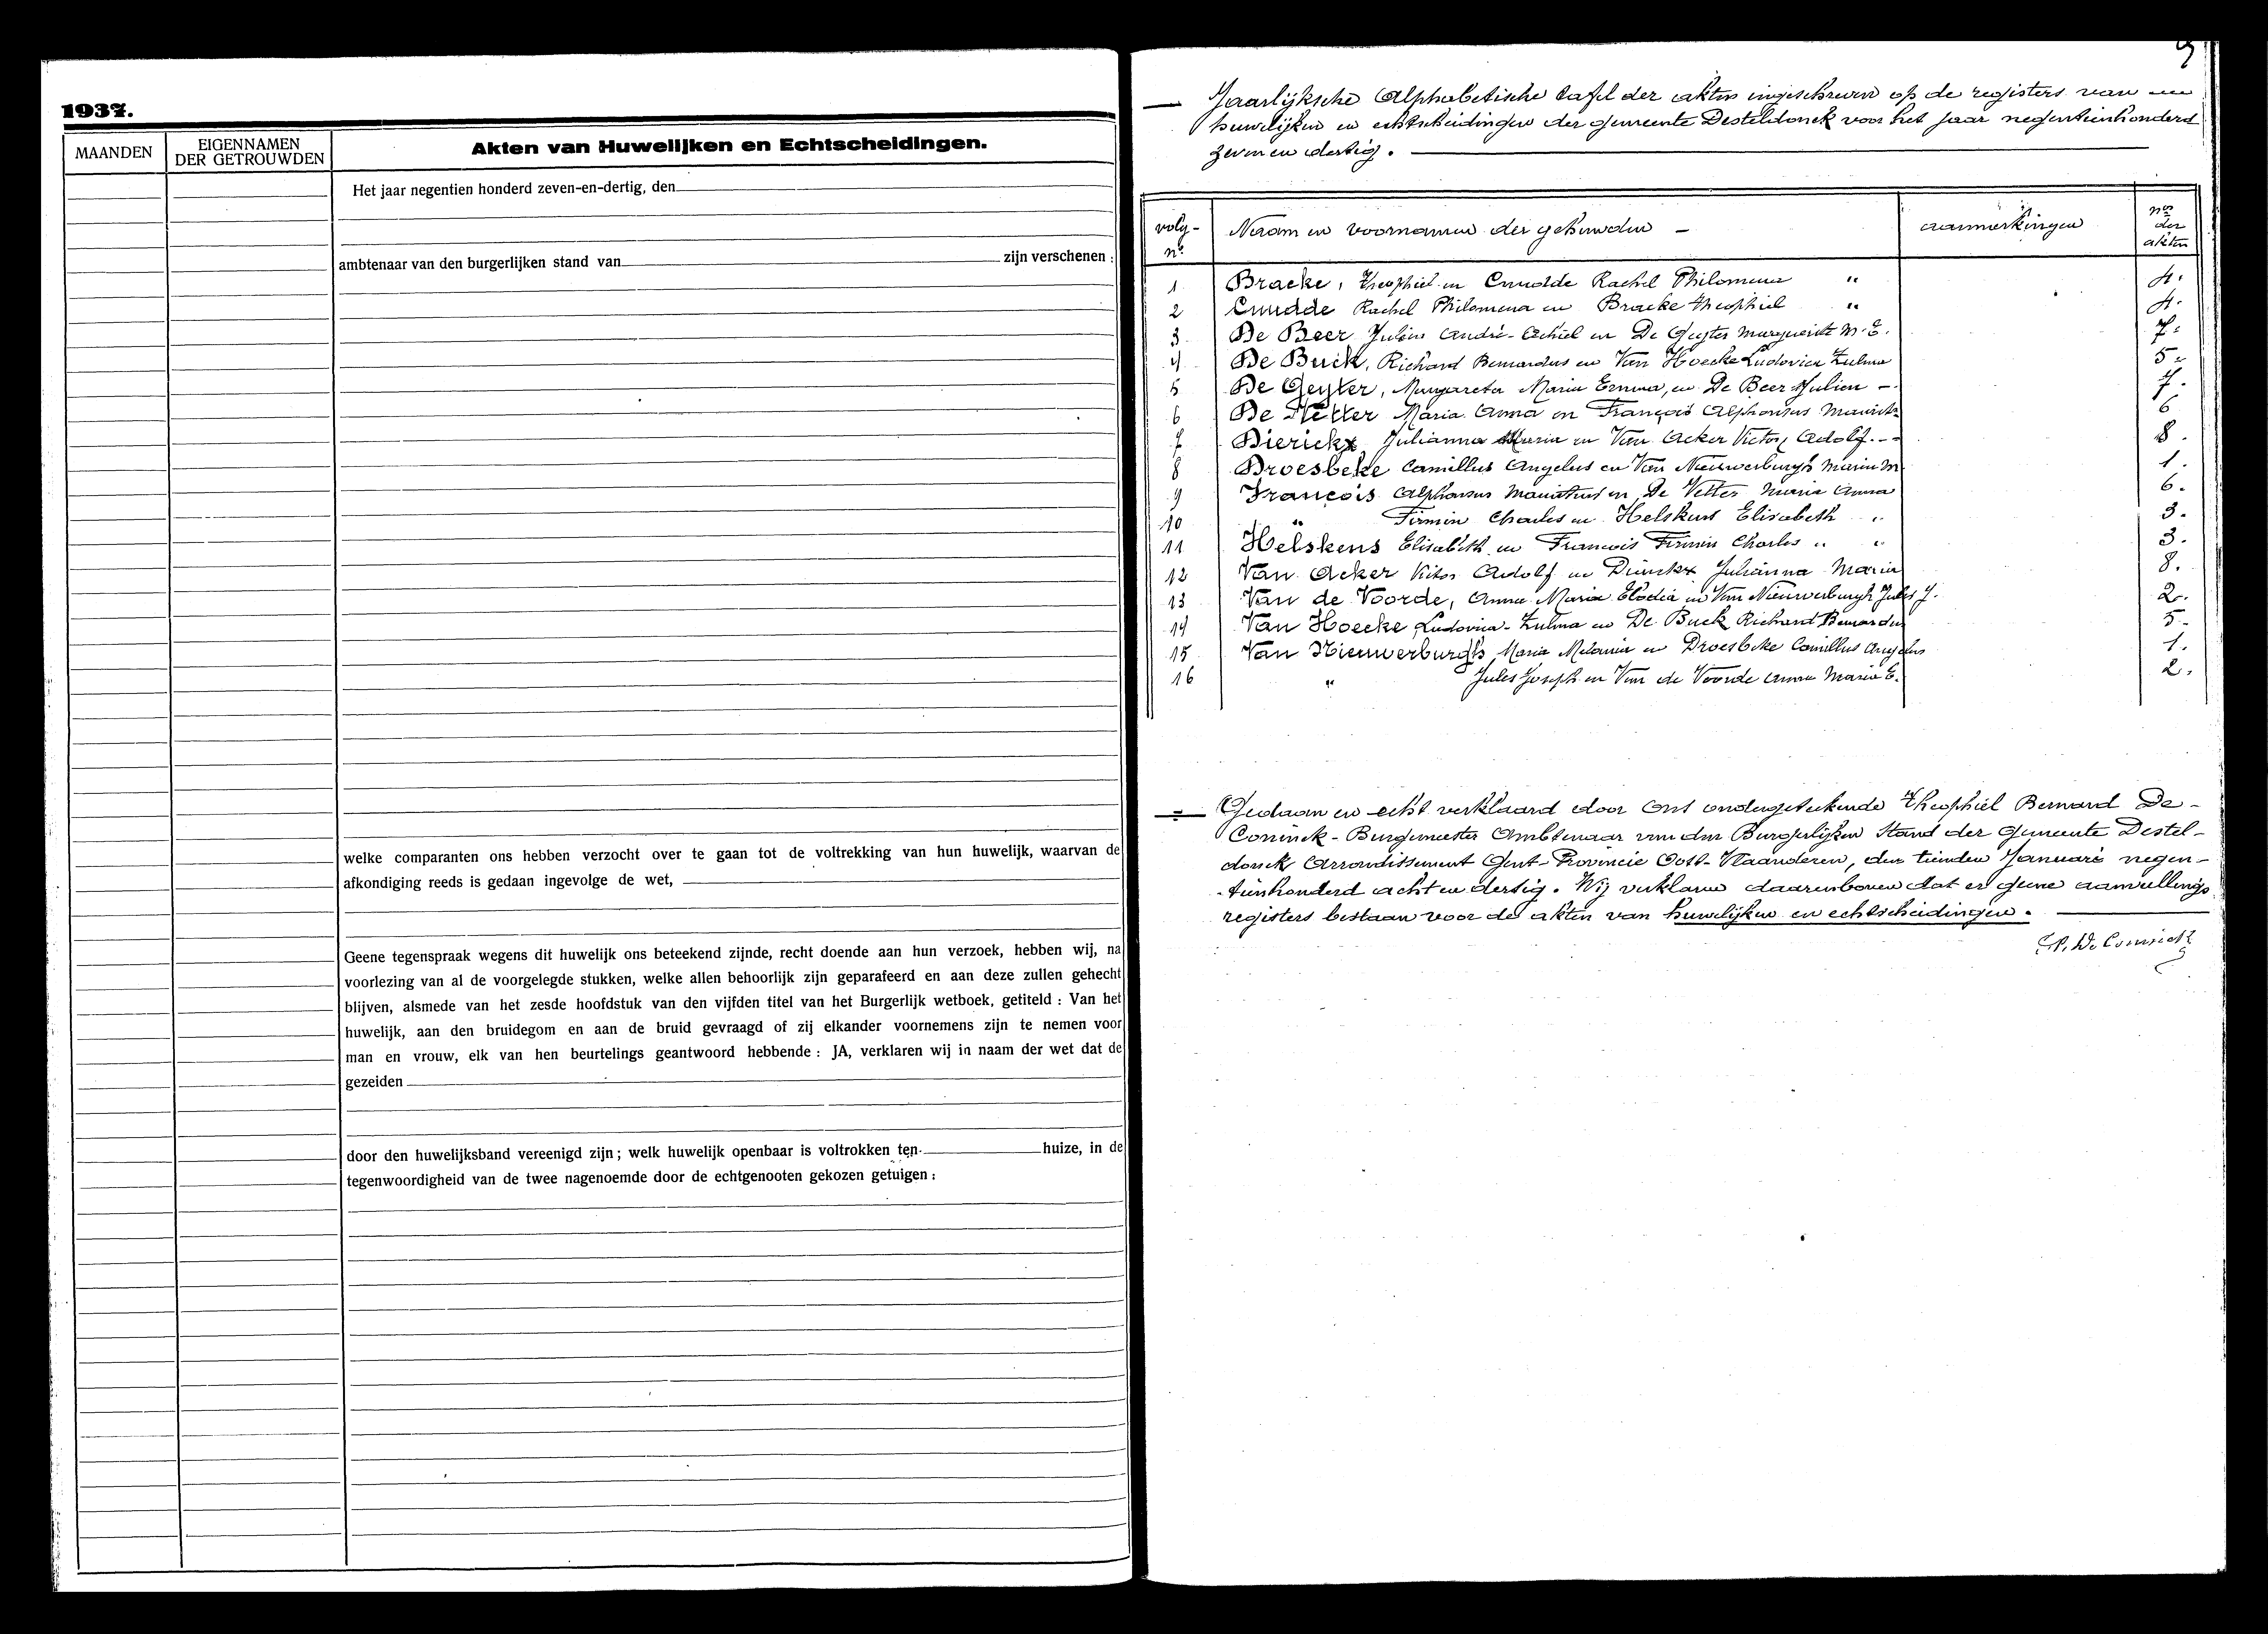 1937.
MAANDEN
EIGENNAMEN
DER GETROUWDEN
Akten van Huwelijken en Echtscheidingen.
Het jaar negentien honderd zeven-en-dertig, den
ambtenaar van den burgerlijken stand van zijn verschenen :
welke comparanten ons hebben verzocht over te gaan tot de voltrekking van hun huwelijk, waarvan de
afkondiging reeds is gedaan ingevolge de wet,
Geene tegenspraak wegens dit huwelijk ons beteekend zijnde, recht doende aan hun verzoek, hebben wij, na
voorlezing van al de voorgelegde stukken, welke allen behoorlijk zijn geparafeerd en aan deze zullen gehecht
blijven, alsmede van het zesde hoofdstuk van den vijfden titel van het Burgerlijk wetboek, getiteld : Van het
huwelijk, aan den bruidegom en aan de bruid gevraagd of zij elkander voornemens zijn te nemen voor
man en vrouw, elk van hen beurtelings geantwoord hebbende : JA, verklaren wij in naam der wet dat de
gezeiden
door den huwelijksband vereenigd zijn ; welk huwelijk openbaar is voltrokken ten huize, in de
tegenwoordigheid van de twee nagenoemde door de echtgenooten gekozen getuigen :
9
Jaarlijksche Alphabetische tafel der akten ingeschreven op de registers van
huwelijken en echtscheidingen der gemeente Desteldonck voor het jaar negentienhonderd
zeven en dertig.
volg-nr. Naam en voornamen der gehuwden — aanmerkingen nos der akten
1 Bracke, Theophiel en Cnudde Rachel Philomena " 4.
2 Cnudde Rachel Philomena en Bracke Theophiel " 4.
3 De Beer Julien André - Achiel en De Geyter Marguerite M. E. 7.
4 De Buck, Richard Bernardus en Van Hoecke Ludovica Zulma 5.
5 De Geyter, Margareta Maria Emma, en De Beer Julien — 7.
6 De Vetter Maria Anna en François Alphonsus 6
7 Dierickx Julianna Maria en Van Acker Victor Adolf. - 8.
8 Droesbeke Camillus Angelus en Van Nieuwerburgh Maria M 1.
9 François Alphonsus en De Vetter Maria Anna 6.
10 " Firmin Charles en Helskens Elisabeth " 3.
11 Helskens Elisabeth en Francois Firmin Charles " " 3.
12 Van Acker Victor Adolf en Dierickx Julianna Maria 8.
13 Van de Voorde, Anna Maria Elodia en Van Nieuwerburgh Jules J. 2.
14 Van Hoecke Ludovica - Zulma en De Buck Richard Bernardus 5.
15 Van Nieuwerburgh Maria Melania en Droesbeke Camillus Angelus 1.
16 " Jules Joseph en Van de Voorde Anna Maria E. 2.
Gedaan en echt verklaard door Ons ondergeteekende Theophiel Bernard De-
Coninck - Burgemeester Ambtenaar van den Burgerlijken Stand der Gemeente Destel-
donck Arrondissement Gent - Provincie Oost-Vlaanderen, den tienden Januari negen-
tienhonderd acht en dertig. Wij verklaren daarenboven dat er geene aanvullings
registers bestaan voor de akten van huwelijken en echtscheidingen.
De Coninck